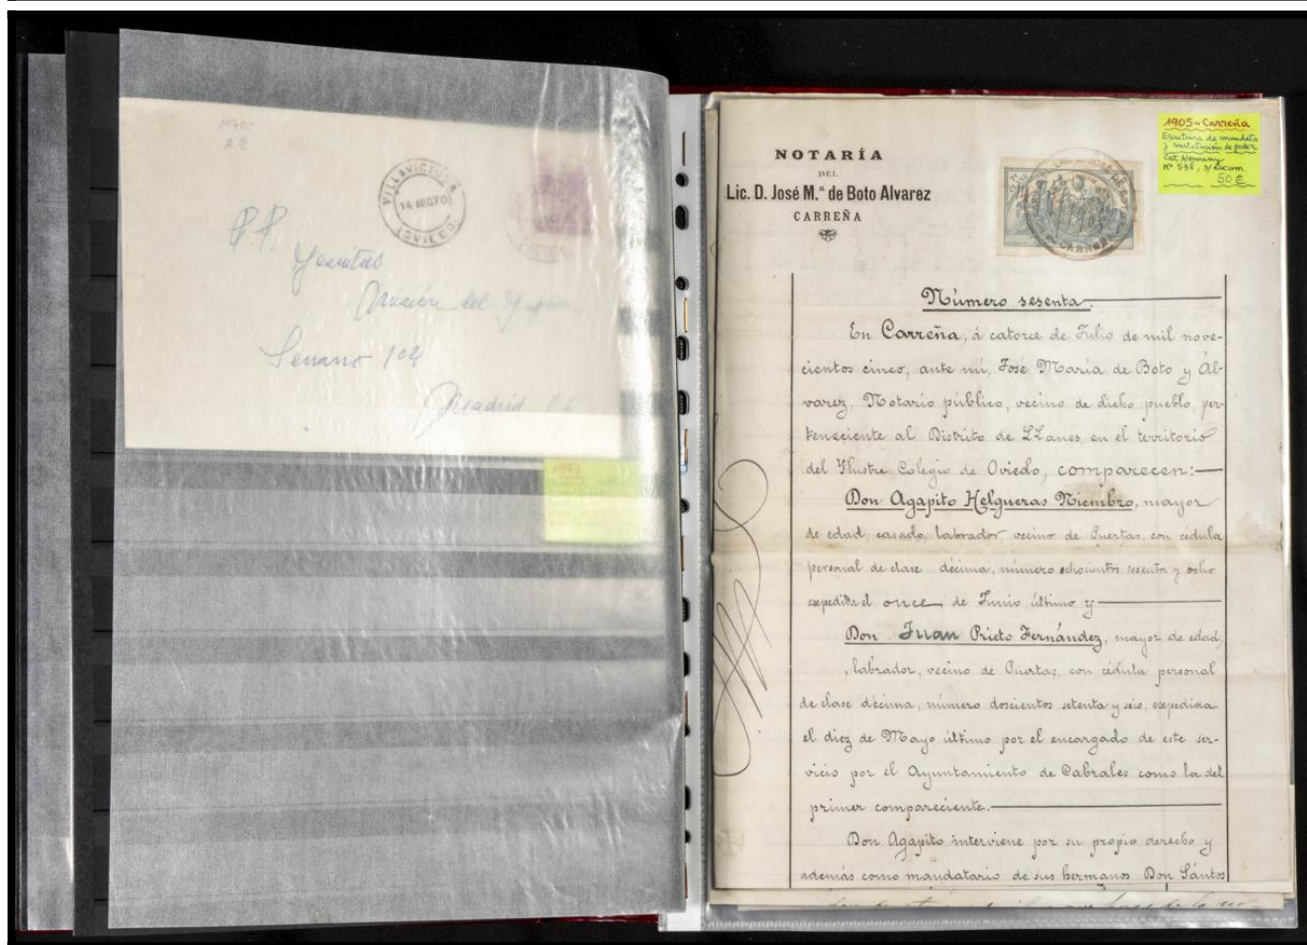 P.P. Jesuitas
Misión del
Serrano 104
Madrid
VILLAVICIOSA
(OVIEDO)
1970
NOTARÍA
DEL
Lic. D. José M.ª de Boto Alvarez
CARREÑA
1905-Carreña
Escritura de mandato
y sustitución de poder
Cat. Alemany
Nº 538, s/ docum.
50 €
Número sesenta.
En Carreña, á catorce de Julio de mil nove-
cientos cinco, ante mí, José María de Boto y Ál-
varez, Notario público, vecino de dicho pueblo, per-
teneciente al Distrito de LLanes, en el territorio
del Ilustre Colegio de Oviedo, comparecen:
Don Agapito Helgueras Niembro, mayor
de edad, casado, labrador vecino de Puertas, con cédula
personal de clase décima, número ochocientos sesenta y ocho
expedida el once de Junio último y
Don Juan Prieto Fernández, mayor de edad,
, labrador, vecino de Puertas, con cédula personal
de clase décima, número doscientos setenta y seis, expedida
el diez de Mayo último por el encargado de este ser-
vicio por el Ayuntamiento de Cabrales como la del
primer compareciente.
Don Agapito interviene por su propio derecho y
además como mandatario de sus hermanos Don Sántos